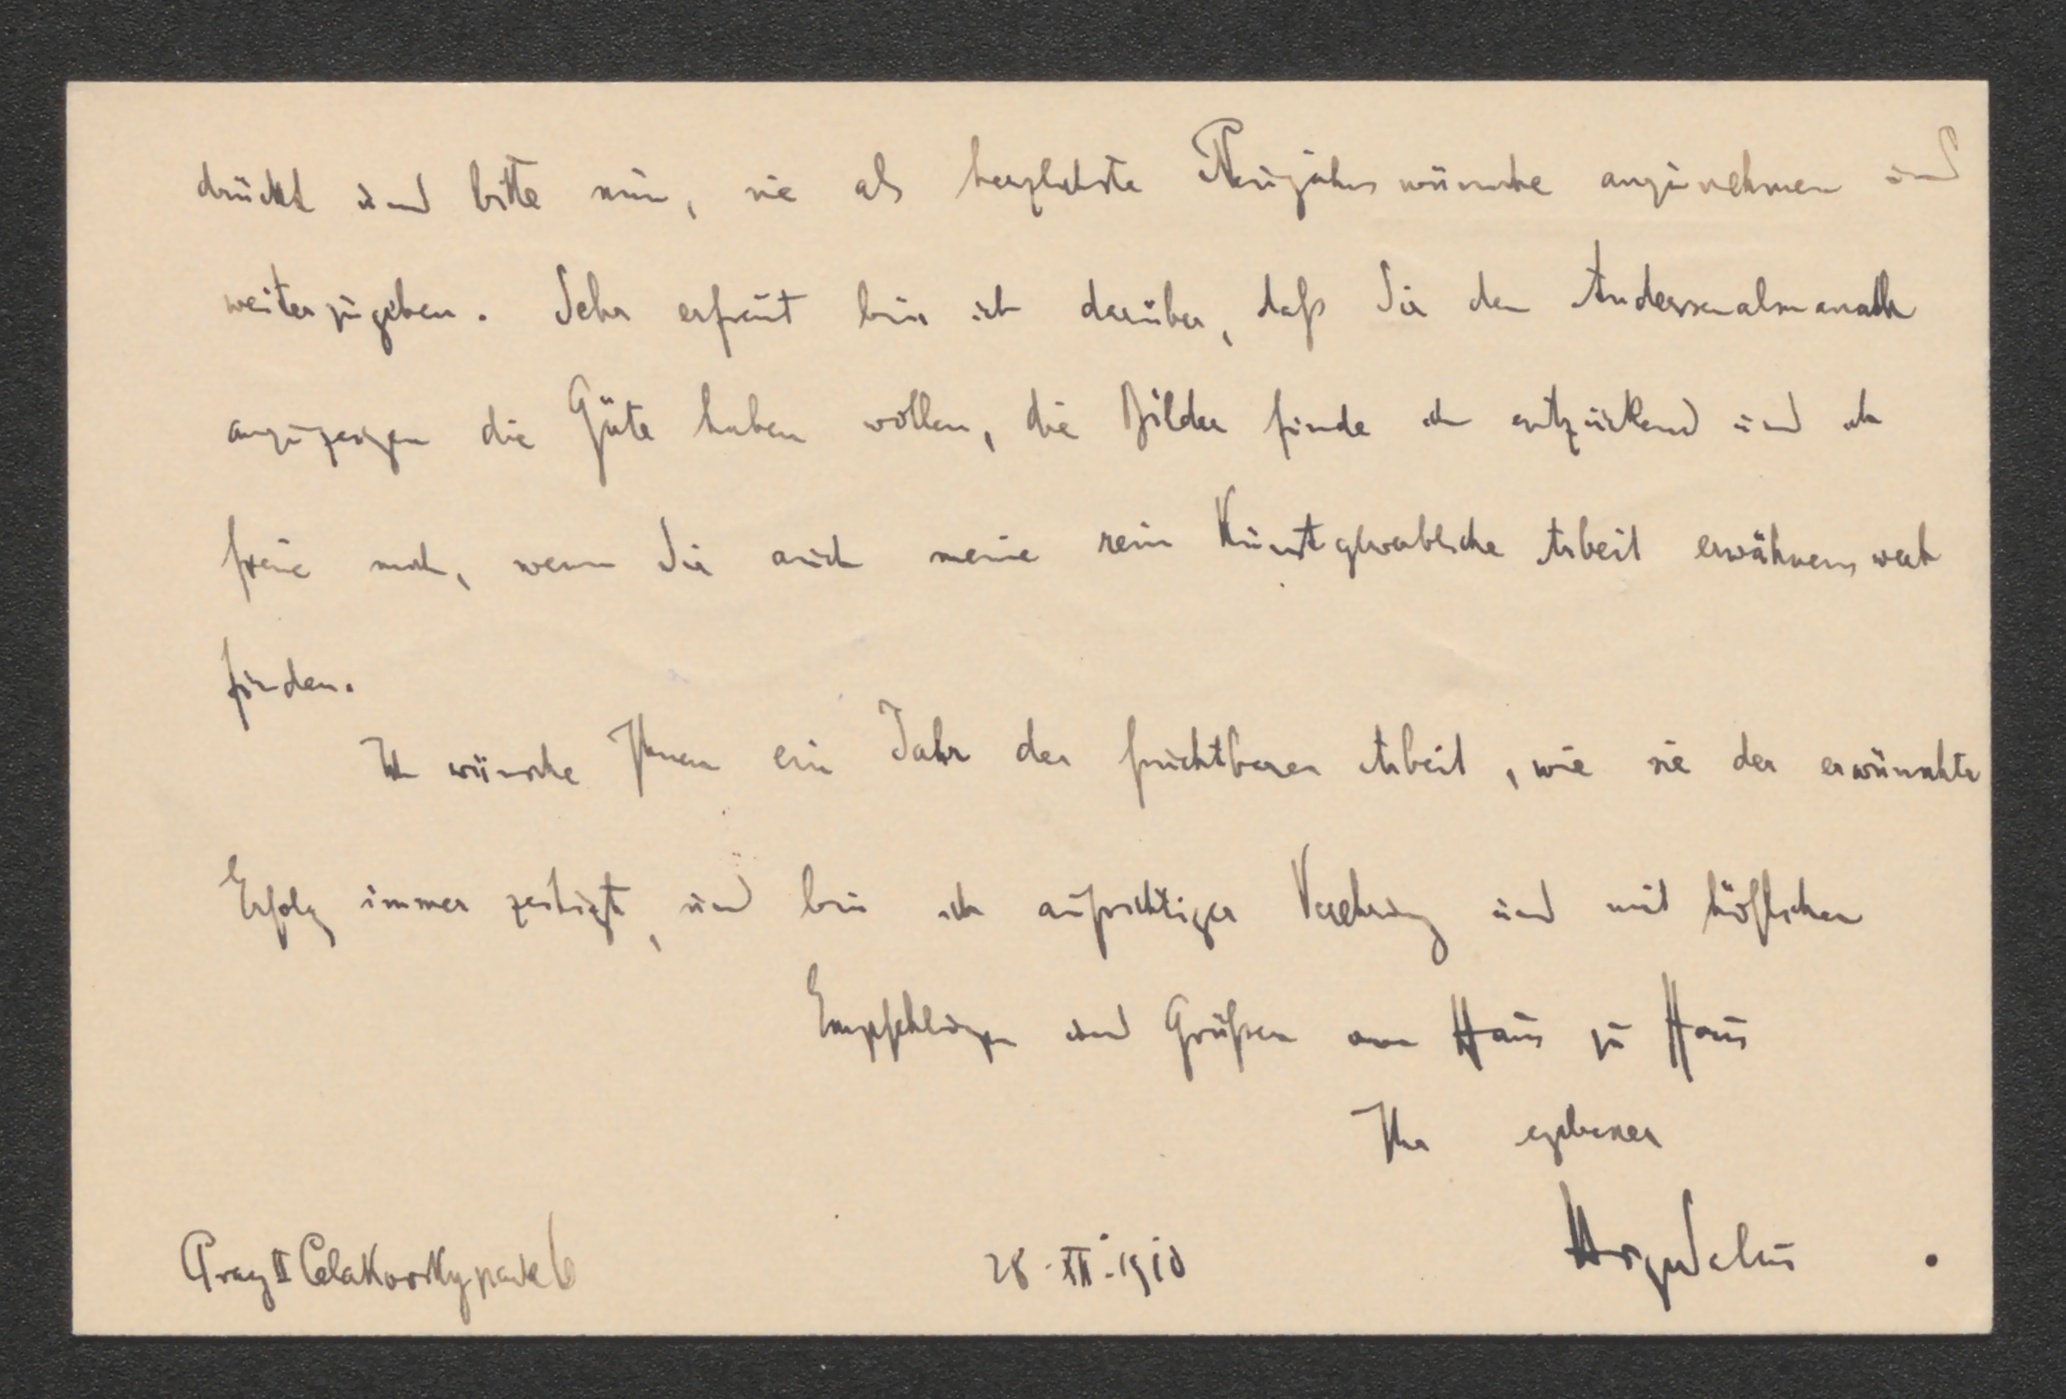 drückt und bitte nun, sie als herzlichste Neujahrswünsche anzunehmen und
weiterzugeben. Sehr erfreut bin ich darüber, daß Sie den Andersenalmanach
anzuzeigen die Güte haben wollen, die Bilder finde ich entzückend und ich
freue mich, wenn Sie auch meine rein Kunstgewerbliche Arbeit erwähnenswert
finden.
Ich wünsche Ihnen ein Jahr der fruchtbaren Arbeit, wie sie der erwünschte
Erfolg immer zeitigt, und bin in aufrichtiger Verehrung und mit höflichen
Empfehlungen und Grüßen von Haus zu Haus
Ihr ergebener
Hugo Salus
Prag II Celakovskypark 6
28. XII. 1910